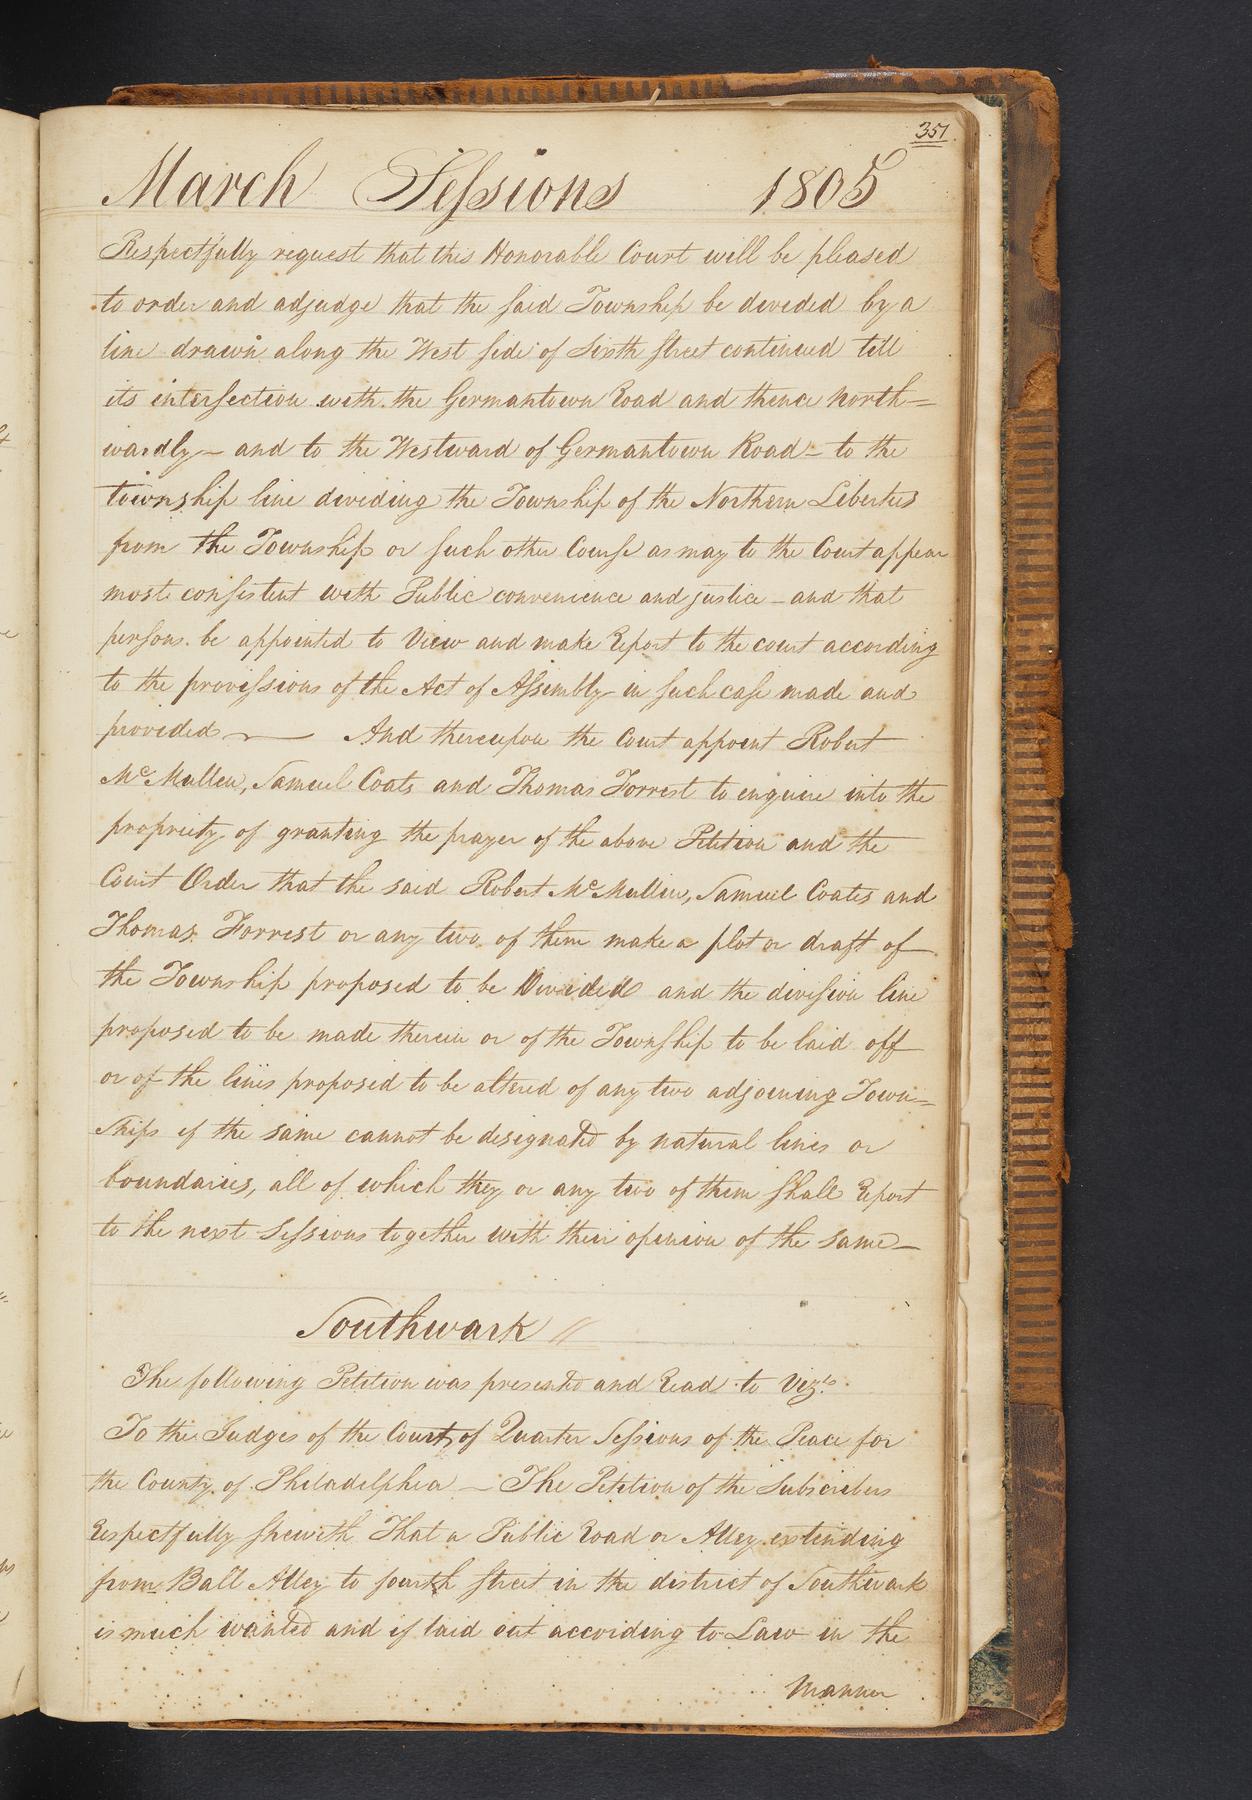 351
March Sessions 1805
Respectfully request that this Honorable Court will be pleased
to order and adjudge that the said Township be divided by a
line drawn along the West side of Sixth street continued till
its intersection with the Germantown Road and thence North=
wardly — and to the Westward of Germantown Road — to the
township line dividing the Township of the Northern Liberties
from the Township or such other Course as may to the Court appear
most consistent with Public convenience and justice — and that
persons be appointed to View and make Report to the court according
to the provissions of the Act of Assembly in such case made and
provided — And thereupon the Court appoint Robert
McMullen, Samuel Coats and Thomas Forrest to enquire into the
propriety of granting the prayer of the above Petition and the
Court Order that the said Robert McMullin, Samuel Coates and
Thomas Forrest or any two of them make a plot or draft of
the Township proposed to be Divided and the division line
proposed to be made therein or of the Township to be laid off
or of the lines proposed to be altered of any two adjoining Town=
ships if the same cannot be designated by natural lines or
boundaries, all of which they or any two of them shall Report
to the next Sessions together with their opinion of the same —
Southwark //
The following Petition was presented and Read to Vizt.
To the Judges of the Court of Quarter Sessions of the Peace for
the County of Philadelphia — The Petition of the Subscribers
Respectfully sheweth That a Public Road or Alley extending
from Ball Alley to fourth street in the district of Southwark
is much wanted and if laid out according to Law in the
Manner